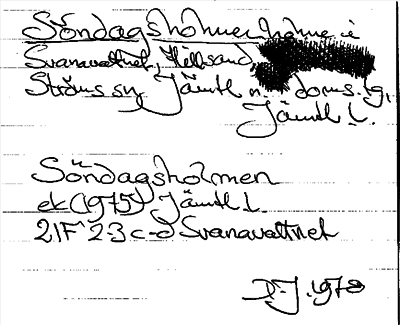 Söndagsholmen holme i
Svanavattnet, Hällsand,
Ströms sn, Jämtl n. doms.lg,
Jämtl l.
Söndagsholmen
ek (1975) Jämtl l.
21F 23 c-d Svanavattnet
D.J. 1978